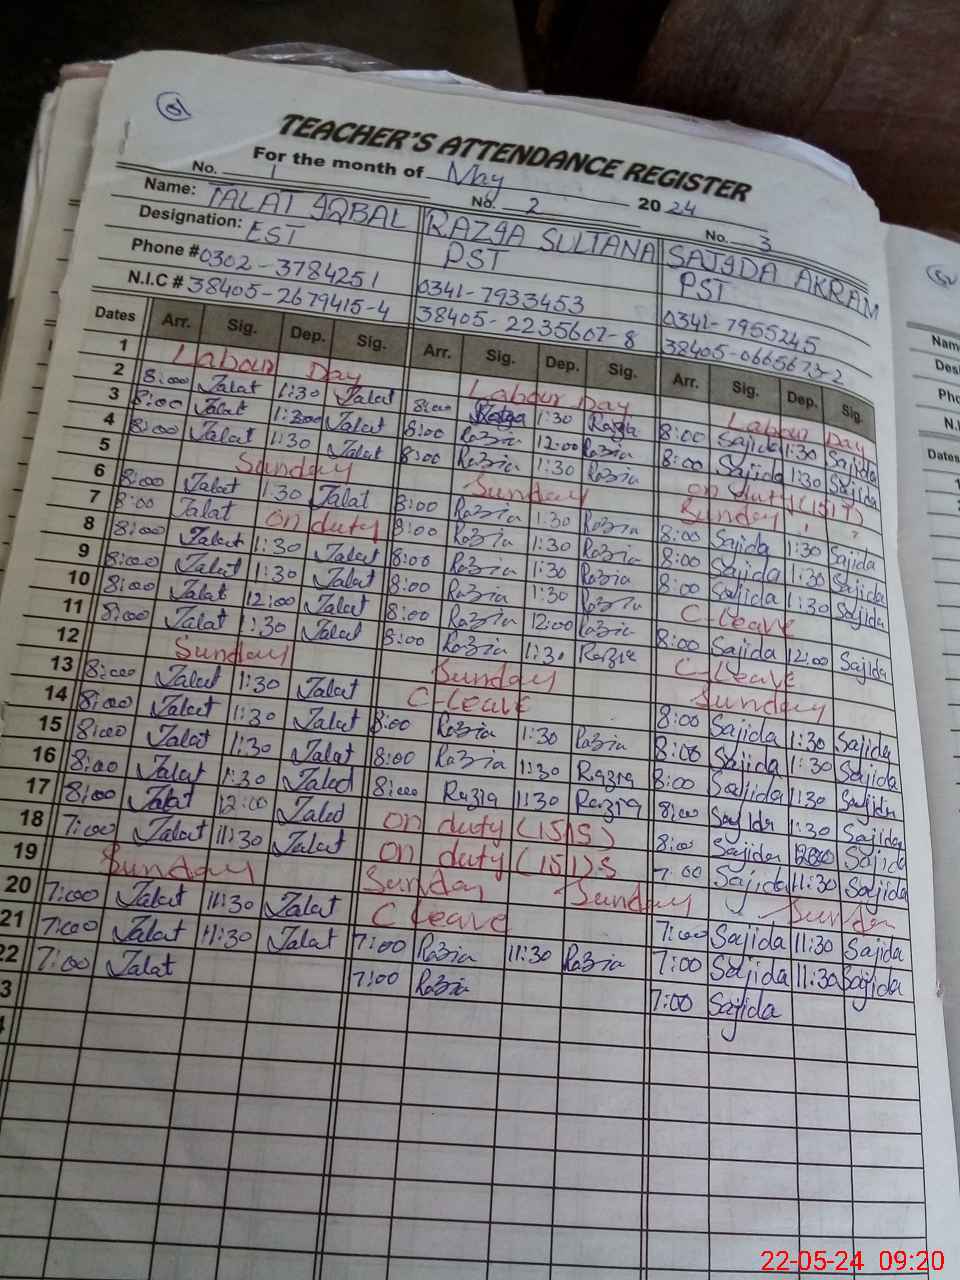 TEACHER'S ATTENDANCE REGISTER
For the month of May 2024
No. 1 No. 2 No. 3
Name: TALAT IQBAL RAZIA SULTANA SAJIDA AKRAM
Designation: EST PST PST
Phone # 0302-3784251 0341-7933453 0341-7955245
N.I.C # 38405-2679415-4 38405-2235607-8 38405-0665673-2
Dates Arr. Sig. Dep. Sig. Arr. Sig. Dep. Sig. Arr. Sig. Dep. Sig.
1 Labour Day Labour Day Labour Day
2 8:00 Talat 1:30 Talat 8:00 Razia 1:30 Razia 8:00 Sajida 1:30 Sajida
3 8:00 Talat 12:00 Talat 8:00 Razia 12:00 Razia 8:00 Sajida 1:30 Sajida
4 8:00 Talat 1:30 Talat 8:00 Razia 1:30 Razia on duty (151)
5 Sunday Sunday Sunday
6 8:00 Talat 1:30 Talat 8:00 Razia 1:30 Razia 8:00 Sajida 1:30 Sajida
7 8:00 Talat on duty 8:00 Razia 1:30 Razia 8:00 Sajida 1:30 Sajida
8 8:00 Talat 1:30 Talat 8:00 Razia 1:30 Razia 8:00 Sajida 1:30 Sajida
9 8:00 Talat 1:30 Talat 8:00 Razia 1:30 Razia C-Leave
10 8:00 Talat 12:00 Talat 8:00 Razia 12:00 Razia 8:00 Sajida 12:00 Sajida
11 8:00 Talat 1:30 Talat 8:00 Razia 1:30 Razia C-Leave
12 Sunday Sunday Sunday
13 8:00 Talat 1:30 Talat C-Leave 8:00 Sajida 1:30 Sajida
14 8:00 Talat 1:30 Talat 8:00 Razia 1:30 Razia 8:00 Sajida 1:30 Sajida
15 8:00 Talat 1:30 Talat 8:00 Razia 1:30 Razia 8:00 Sajida 1:30 Sajida
16 8:00 Talat 1:30 Talat 8:00 Razia 1:30 Razia 8:00 Sajida 1:30 Sajida
17 8:00 Talat 12:00 Talat on duty (151)S 8:00 Sajida 12:00 Sajida
18 7:00 Talat 11:30 Talat on duty (151)S 7:00 Sajida 11:30 Sajida
19 Sunday Sunday Sunday Sunday
20 7:00 Talat 11:30 Talat C Leave 7:00 Sajida 11:30 Sajida
21 7:00 Talat 11:30 Talat 7:00 Razia 11:30 Razia 7:00 Sajida 11:30 Sajida
22 7:00 Talat 7:00 Razia 7:00 Sajida
3
Nam
Desi
Pho
N.I
Dates
22-05-24 09:20